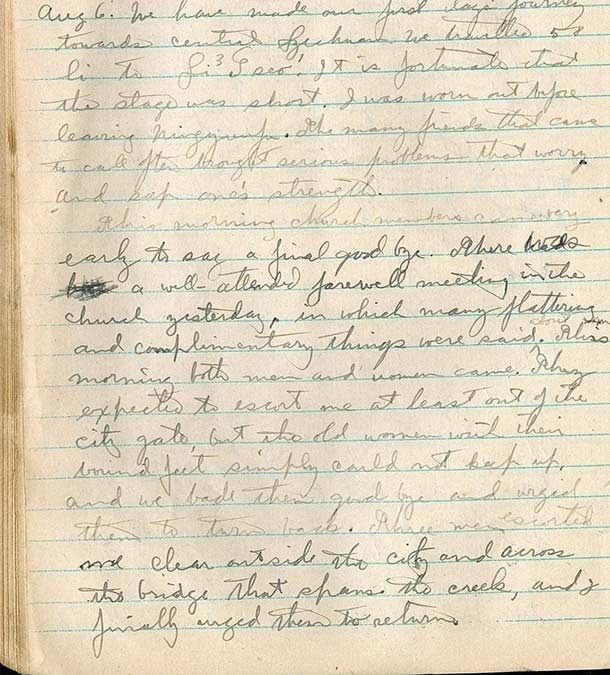 Aug 6. We have made our first days journey
towards central Szechuan we travelled 58
li to Li³ Tseo¹. It is fortunate that
the stage was short. I was worn out before
leaving Ningyuenfu. The many friends that came
to call often brought serious problems that worry
and sap one's strength.
This morning church members came very
early to say a final good bye. There was
a well-attended farewell meeting in the
church yesterday, in which many flattering
and complimentary things were said. This
morning both men and women came. They
expected to escort me at least out of the
city gate, but the old women with their
bound feet simply could not keep up,
and we bade them good bye and urged
them to turn back. Three men escorted
me clear outside the city and across
the bridge that spans the creek, and I
finally urged them to return.